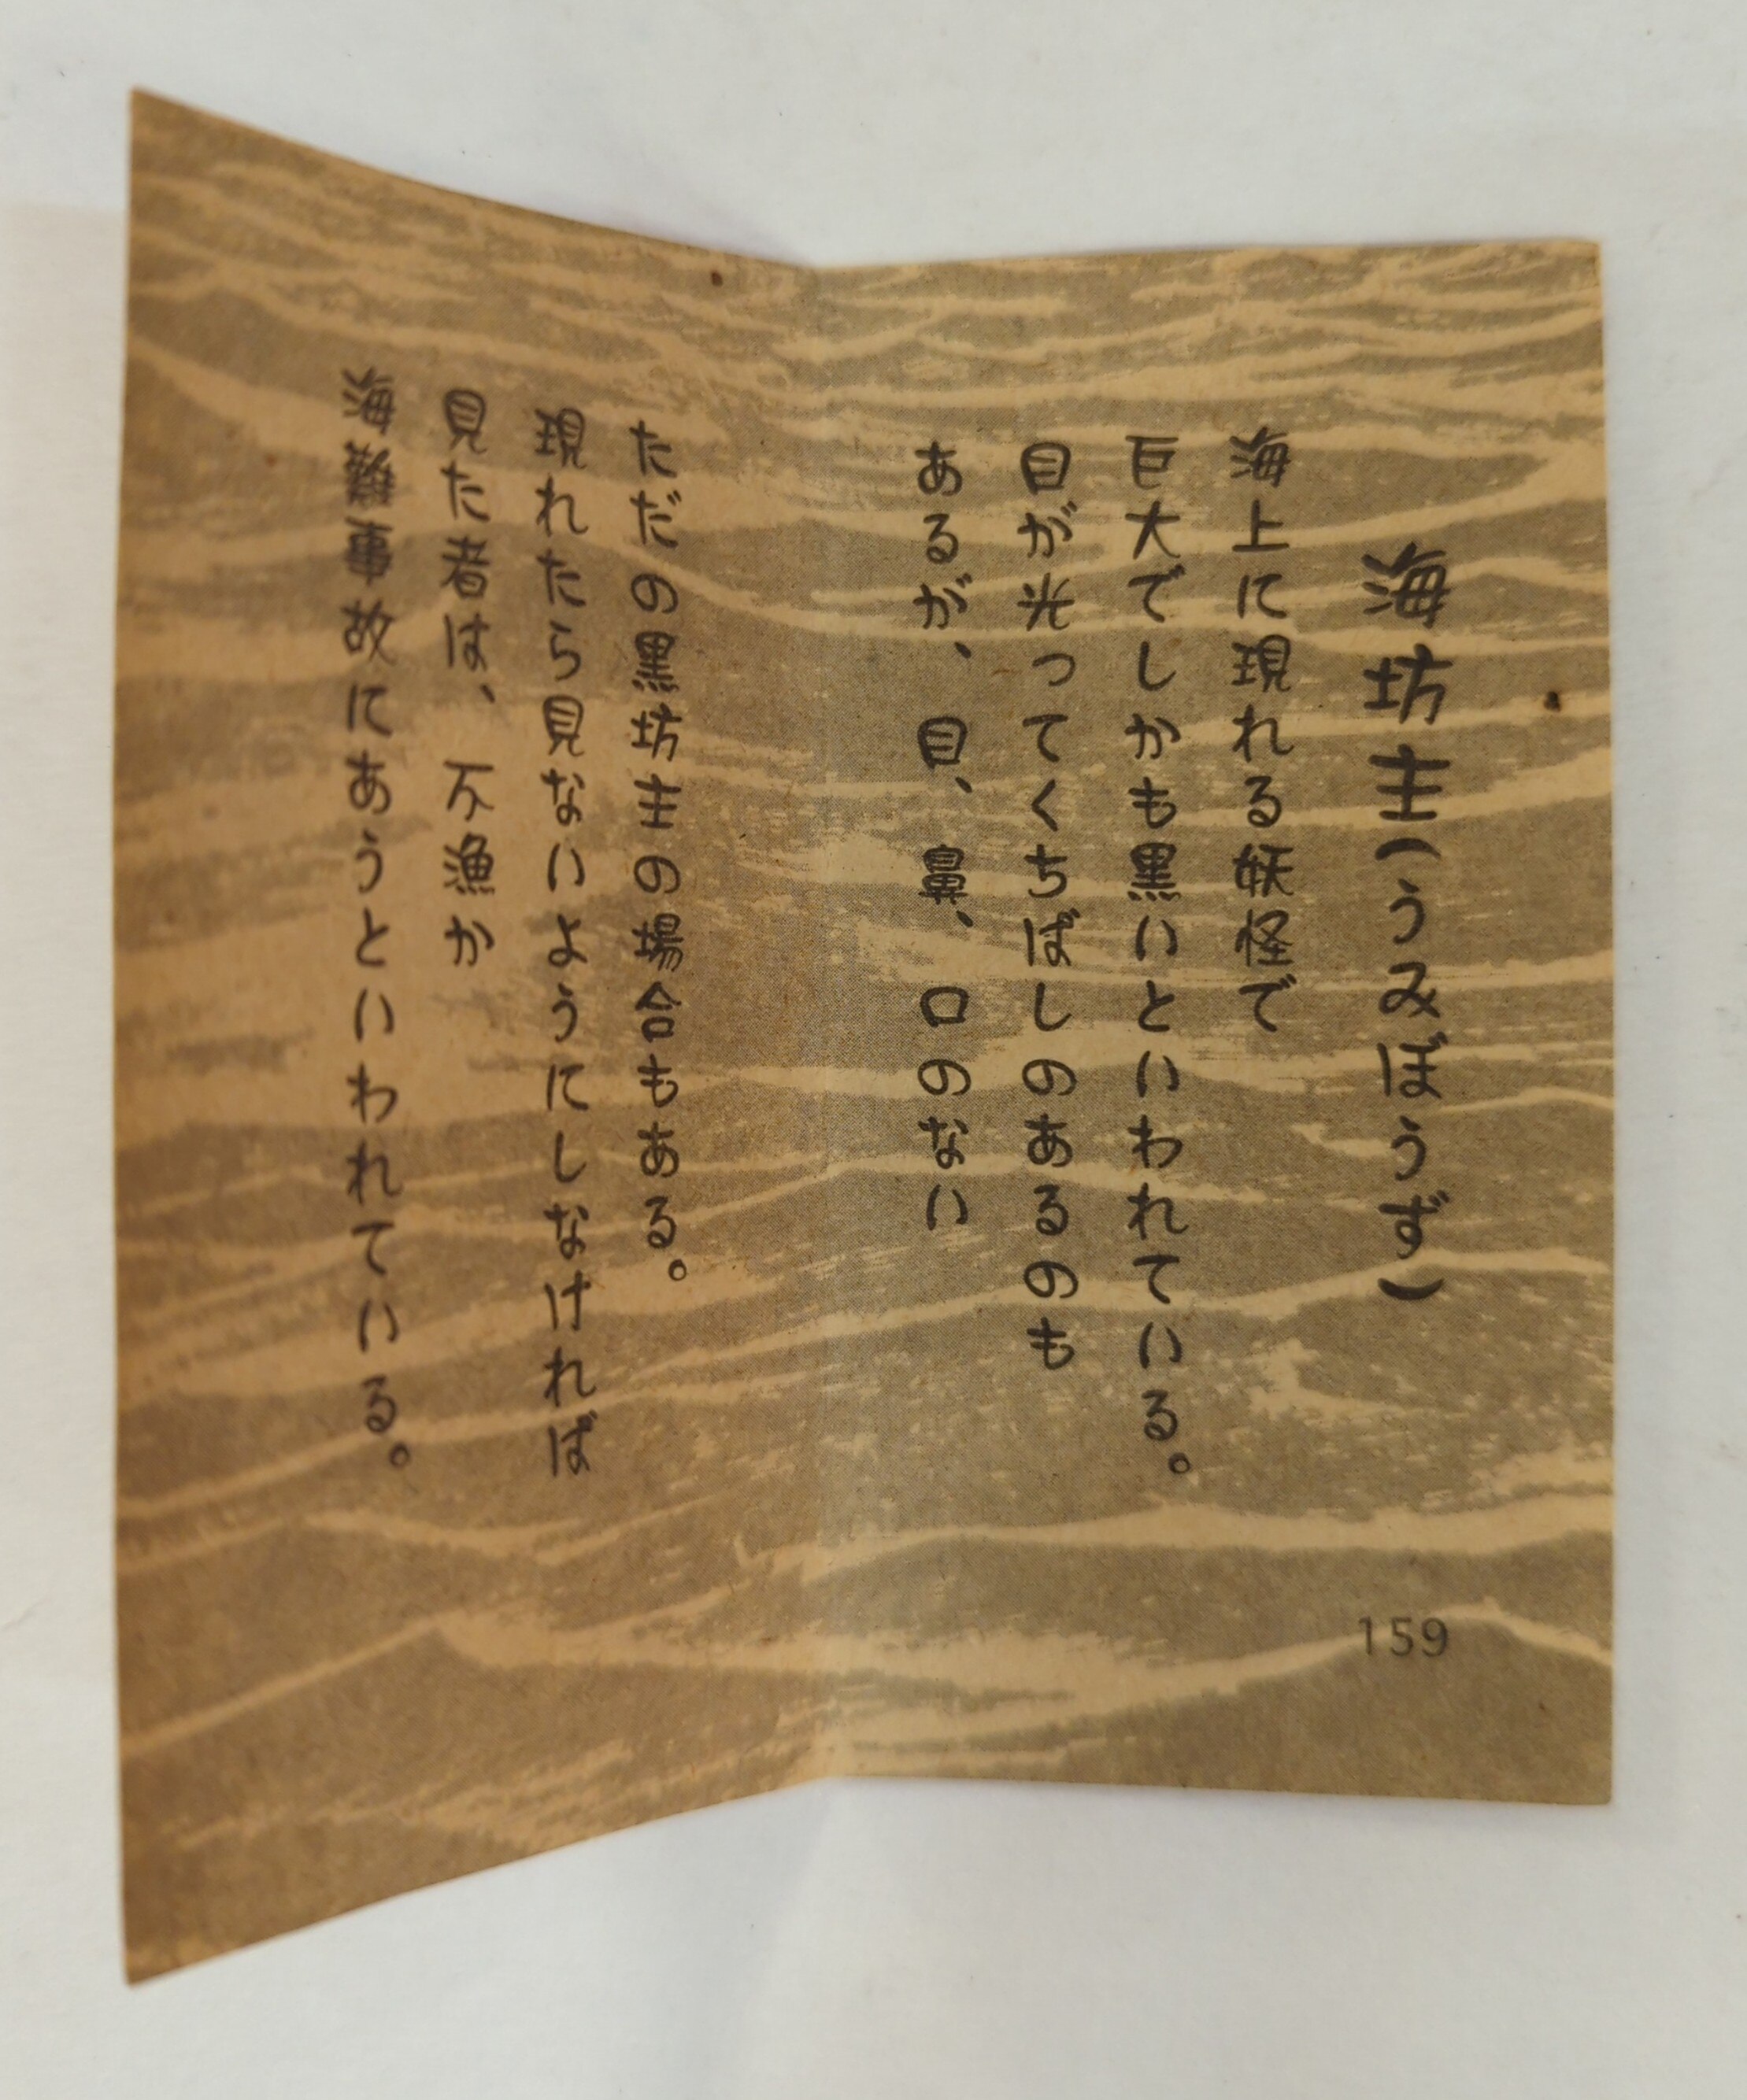 海坊主(うみぼうず)
海上に現れる妖怪で
巨大でしかも黒いといわれている。
目が光ってくちばしのあるのも
あるが、目、鼻、口のない
ただの黒坊主の場合もある。
現れたら見ないようにしなければ
見た者は、不漁か
海難事故にあうといわれている。
159